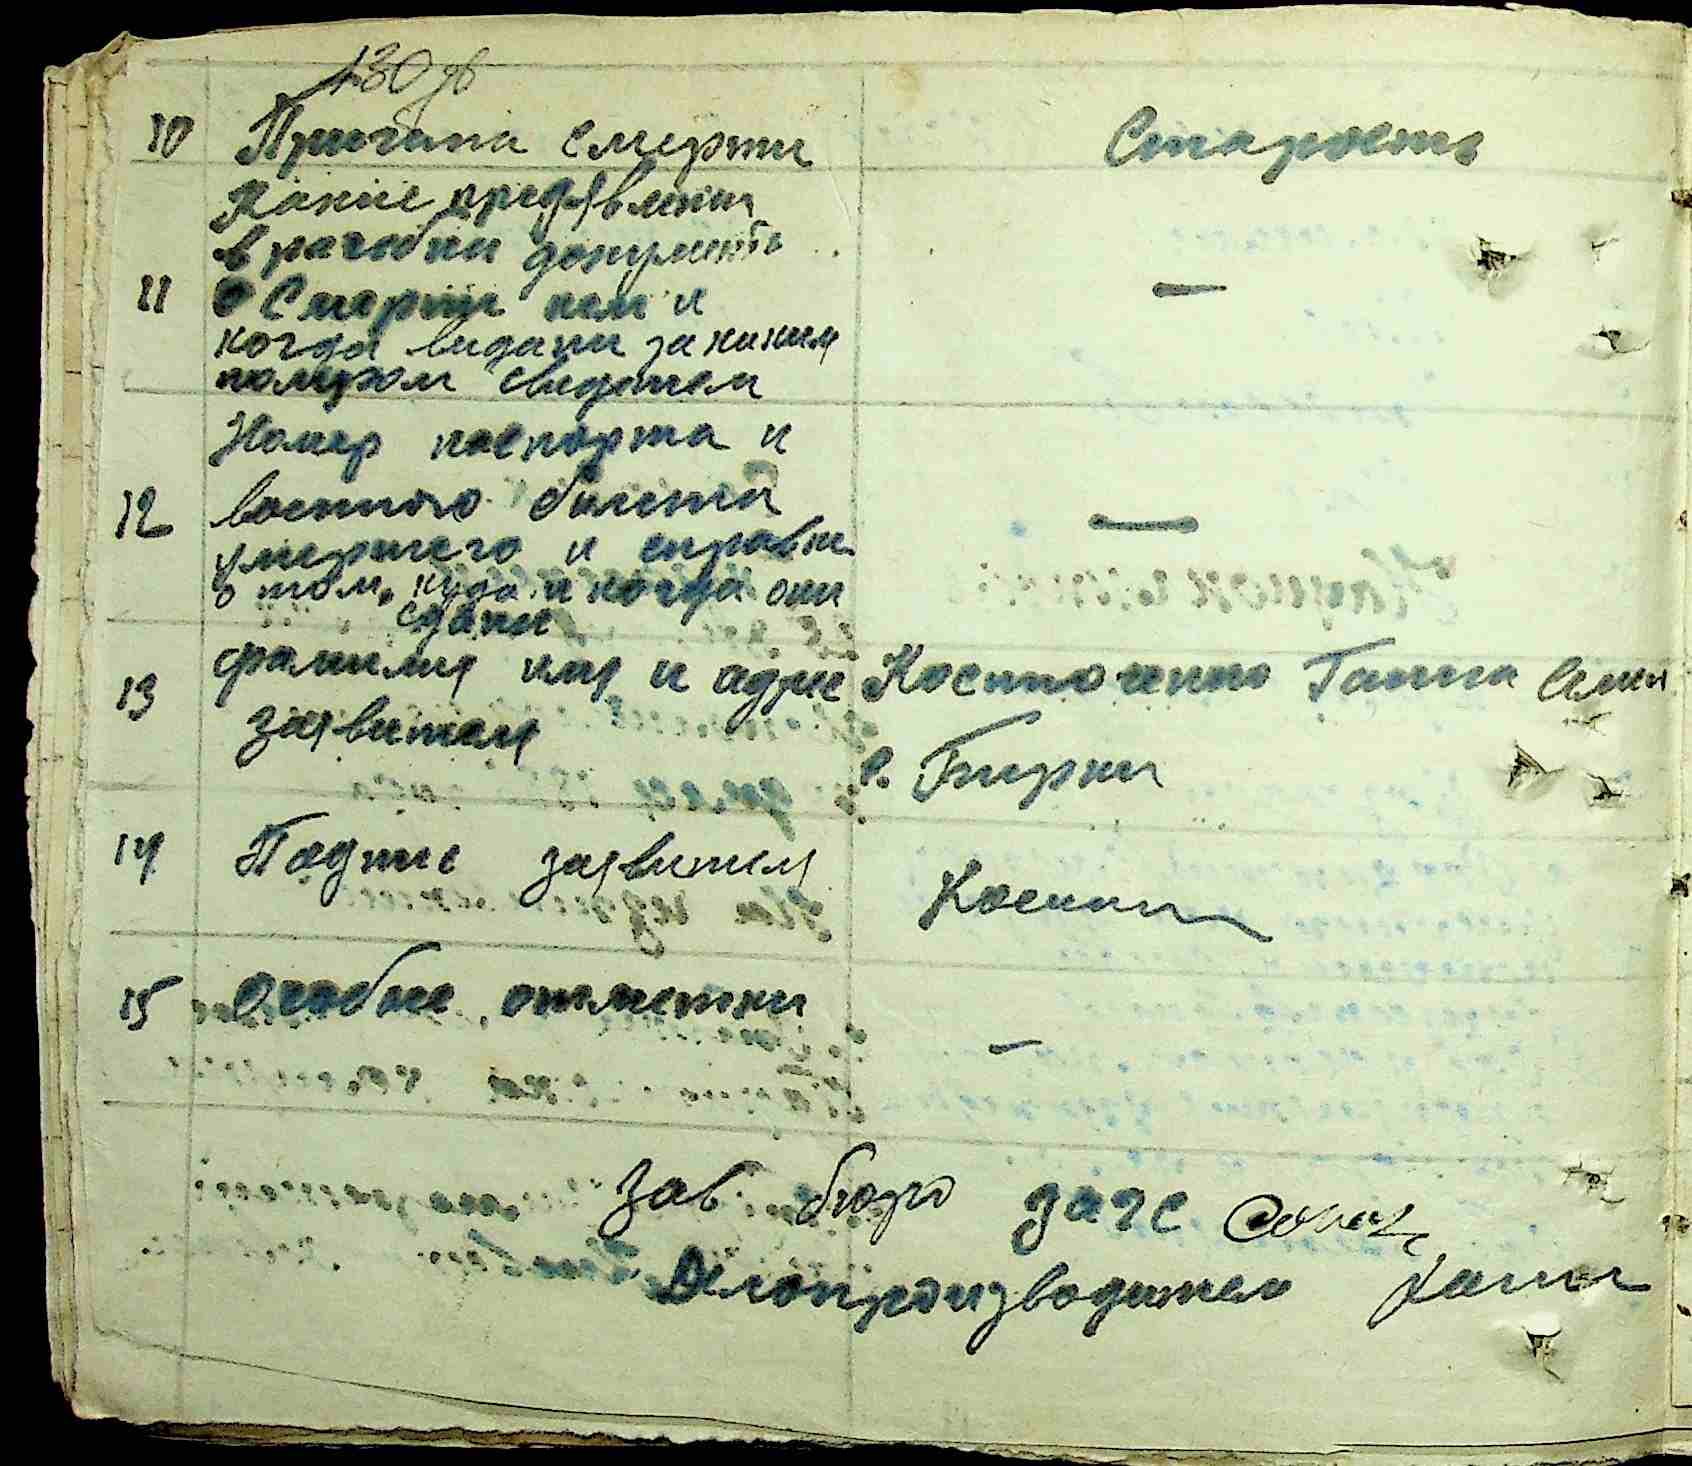 130 об
10 Причина Смерти Старость
Какие предявлени
врачебни документи
11 О Смерти кем и —
когда видани за каким
номером сведетел
Номер паспорта и
12 военного билета —
умершего и справки
о том, куда и когда они
здани
13 фамилия имя и адрес Костюченко Ганна Семен
заявителя с. Бирки
14 Подпис заявителя Костюч
15 Особие отметки —
Зав бюро загс
Делопроизводител